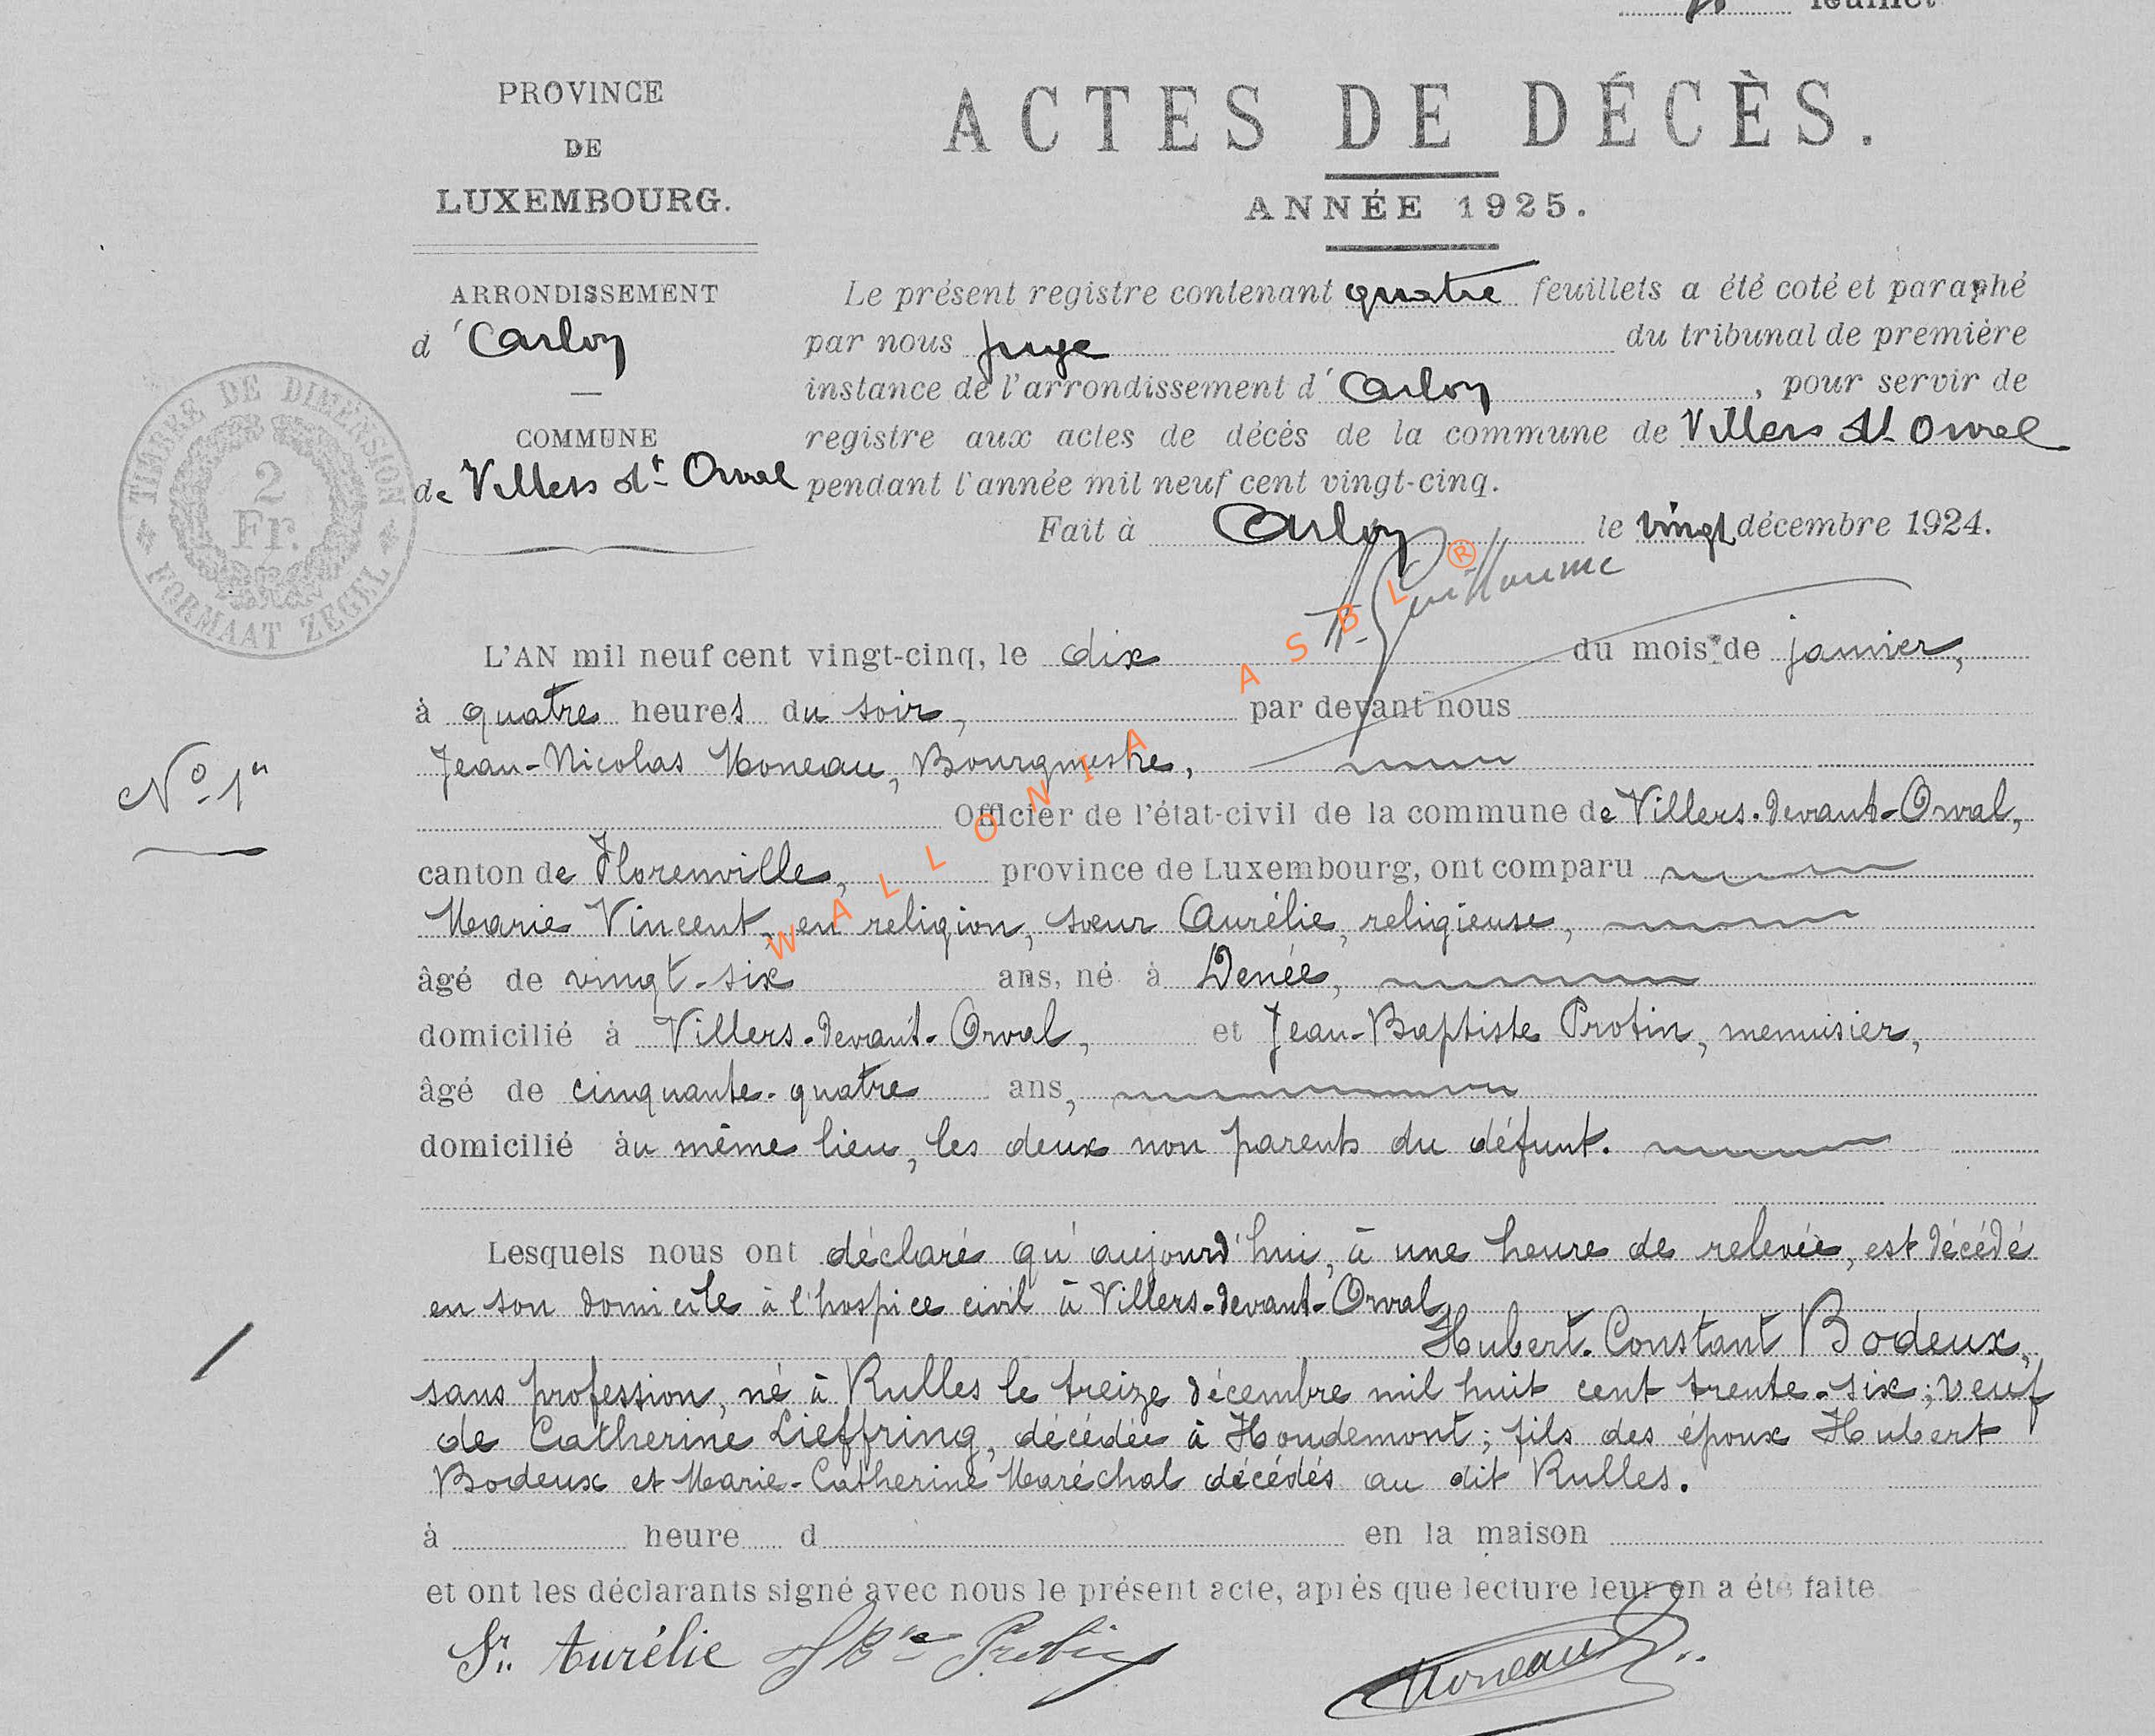 feuillet
PROVINCE
DE
LUXEMBOURG.
ACTES DE DÉCÈS.
ANNÉE 1925.
ARRONDISSEMENT
d'Arlon
COMMUNE
de Villers dt Orval
TIMBRE DE DIMENSION
2
Fr.
FORMAAT ZEGEL
Le présent registre contenant quatre feuillets a été coté et paraphé
par nous Juge du tribunal de première
instance de l'arrondissement d'Arlon, pour servir de
registre aux actes de décès de la commune de Villers dt Orval
pendant l'année mil neuf cent vingt-cinq.
Fait à Arlon le vingt décembre 1924.
Guillaume
WALLONIA ASBL ®
L'AN mil neuf cent vingt-cinq, le dix du mois de janvier,
à quatre heures du soir, par devant nous
Jean-Nicolas Moneau, Bourgmestre,
No 1er
Officier de l'état-civil de la commune de Villers-devant-Orval,
canton de Florenville, province de Luxembourg, ont comparu
Marie Vincent, en religion, sœur Aurélie, religieuse,
âgé de vingt-six ans, né à Denée,
domicilié à Villers-devant-Orval, et Jean-Baptiste Protin, menuisier,
âgé de cinquante-quatre ans,
domicilié au même lieu, les deux non parents du défunt.
Lesquels nous ont déclaré qu'aujourd'hui, à une heure de relevée, est décédé
en son domicile à l'hospice civil à Villers-devant-Orval
Hubert-Constant Bodeux,
sans profession, né à Rulles le treize décembre mil huit cent trente-six; veuf
de Catherine Lieffring, décédée à Houdemont; fils des époux Hubert
Bodeux et Marie-Catherine Maréchal décédés au dit Rulles.
à heure d en la maison
et ont les déclarants signé avec nous le présent acte, après que lecture leur en a été faite
Sr Aurélie JBte Protin Moneau